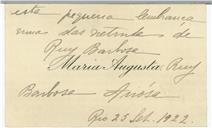 esta pequena lembrança
uma das netinhas de
Ruy Barbosa
Maria Augusta Ruy
Barbosa Airosa
Rio 23 Set. 1922.